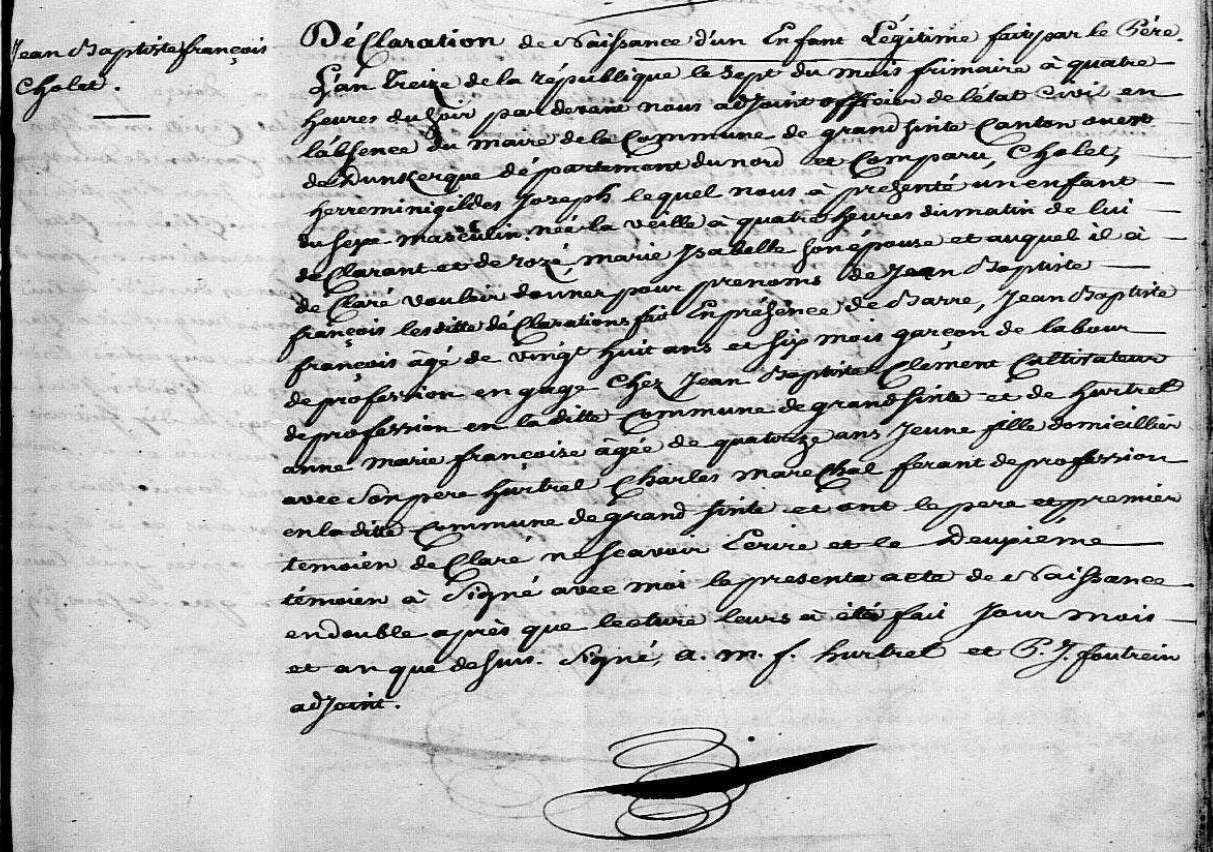 Jean Baptiste françois
Cholet.
Déclaration de Naissance d'un Enfant Légitime fait par le Pére.
L'an treize de la république le sept du mois frimaire à quatre
heures du soir par devant nous adjoint officier de l'état Civil en
l'absence du maire de la Commune de grand sinte Canton ouest
de Dunkerque département du nord et Comparu, Cholet,
herreminigildes Joseph lequel nous à présenté un enfant
du sexe masculin, née la veille à quatre heures du matin de lui
déclarant et de rozé, marie Isabelle son épouse et auquel il à
de Claré vouloir donner pour prenoms de Jean Baptiste
françois lesditte déClarations fait En présence de Barre, Jean Baptiste
françois âgé de vingt huit ans et six mois garçon de labour
de profession en gage Chez Jean Baptiste Clement Cultivateur
de profession en laditte Commune de grand sinte et de hurtrel
anne marie françoise âgée de quatorze ans Jeune fille domicillier
avec son pere hurtrel Charles mareChal ferant de profession
en laditte Commune de grand sinte et ont le pere et premier
temoien de Claré ne scavoir Ecrire et le deuxiéme
témoien à Signé avec moi le presente acte de Naissance
en double après que lecture leurs à été fait Jour mois
et an que desus. Signé, a. m. f. hurtrel et P. J. foutrein
adjoint.